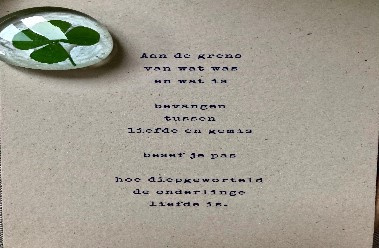 Aan de grens
van wat was
en wat is
bevangen
tussen
liefde en gemis
besef je pas
hoe diepgeworteld
de onderlinge
liefde is.